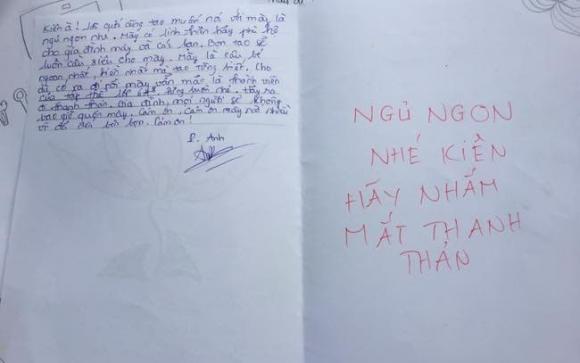 Kiên à! Lời cuối cùng tao muốn nói với mày là
ngủ ngon nhé. Mày có linh thiêng hãy phù hộ
cho gia đình mày và các bạn. Bọn tao sẽ
luôn cầu siêu cho mày. Mày là cậu bé
ngoan nhất, hiền nhất mà tao từng biết. Cho
dù có ra đi rồi mày vẫn mãi là thành viên
của tập thể lớp luôn nhé. Hãy ra
đi thanh thản. Gia đình, mọi người sẽ không
bao giờ quên mày. Cảm ơn. Cảm ơn mày rất nhiều
vì đã bạn. Cảm ơn!
Anh
NGỦ NGON
NHÉ KIÊN
HÃY NHẮM
MẮT THANH
THẢN